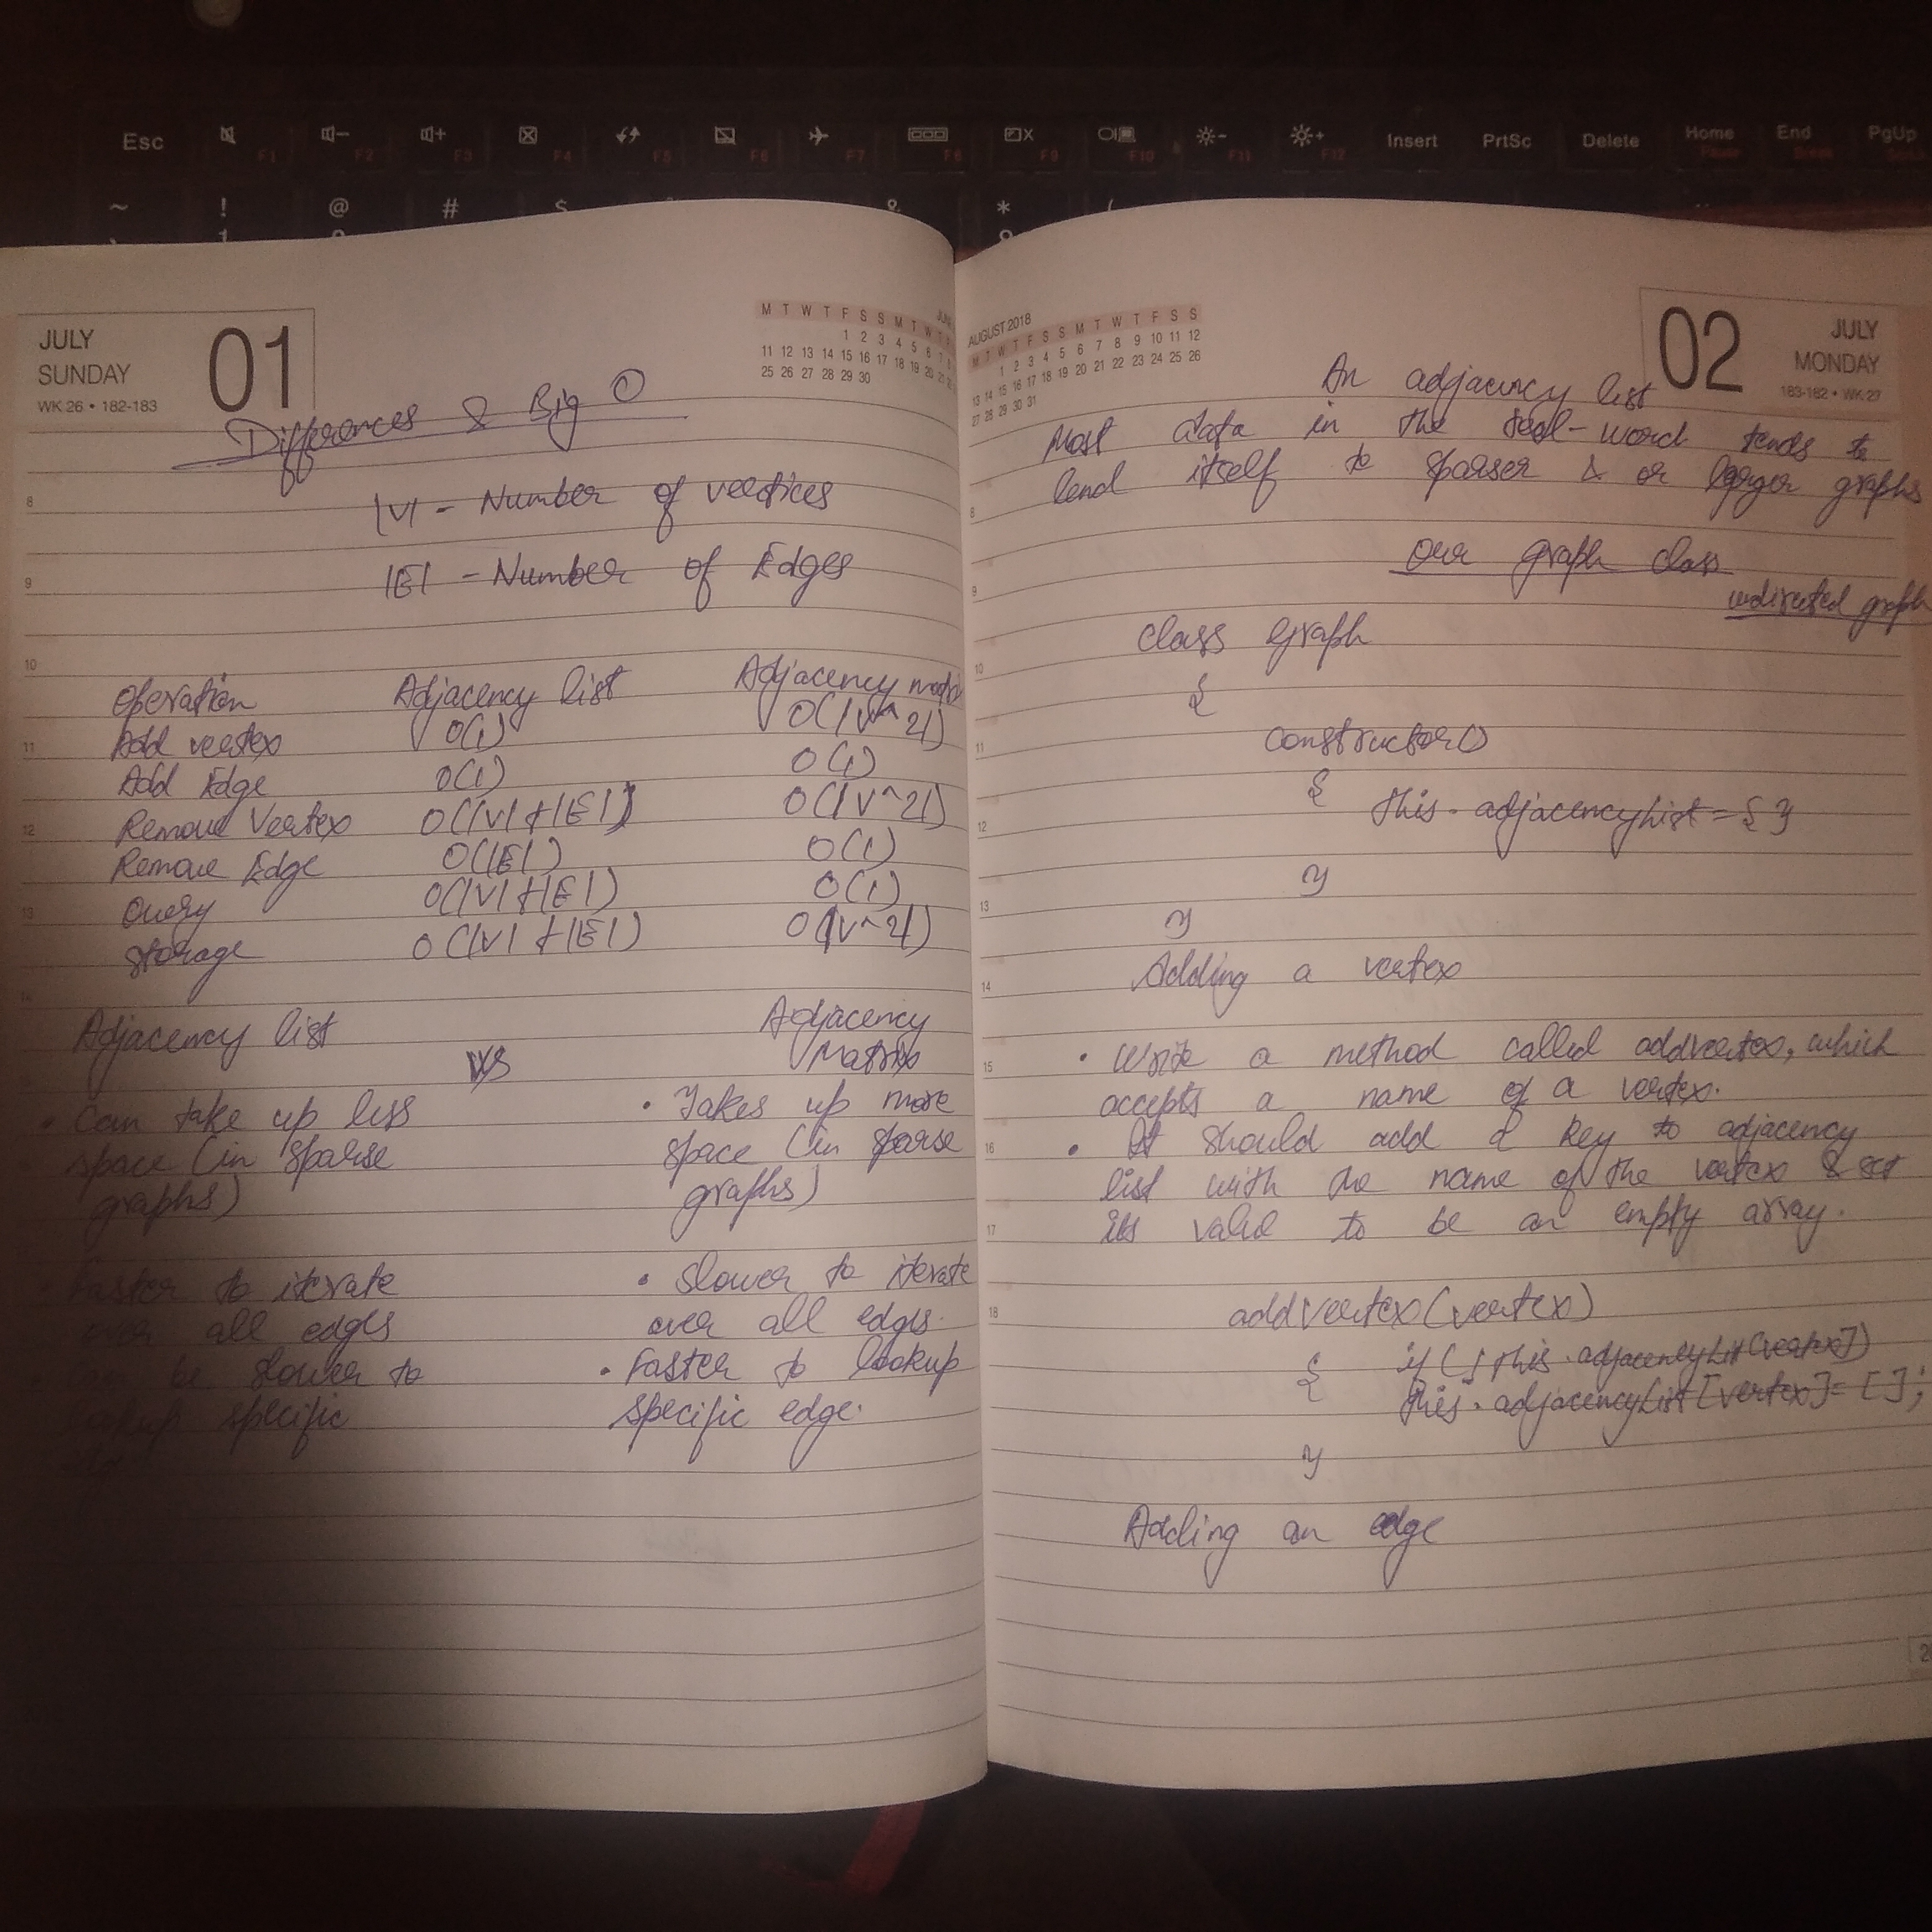 Esc F1 F2 F3 F4 F5 F6 F7 F8 F9 F10 F11 F12 Insert PrtSc Delete Home End PgUp
Pause Break
~ ! @ # $ & * (
JULY
SUNDAY
WK 26 • 182-183
01
JUNE
M T W T F S S M T W T F
1 2 3 4 5 6 7 8
11 12 13 14 15 16 17 18 19 20 21
25 26 27 28 29 30
Differences & Big O
|V| - Number of vertices
|E| - Number of Edges
Operation Adjacency list Adjacency
Add vertex O(1) O(|V^2|)
Add Edge O(1) O(1)
Remove Vertex O(|V|+|E|) O(|V^2|)
Remove Edge O(|E|) O(1)
Query O(|V|+|E|) O(1)
Storage O(|V|+|E|) O(|V^2|)
Adjacency list VS Adjacency
Matrix
• Can take up less
space (in sparse
graphs)
• Takes up more
space (in sparse
graphs)
Faster to iterate
over all edges
be slower to
specific
• Slower to iterate
over all edges.
• Faster to lookup
specific edge.
8
9
10
11
12
13
14
AUGUST 2018
M T W T F S S M T W T F S S
1 2 3 4 5 6 7 8 9 10 11 12
13 14 15 16 17 18 19 20 21 22 23 24 25 26
27 28 29 30 31
02
JULY
MONDAY
183-182 • WK 27
An adjacency list
Most data in the real-word tends to
lend itself to sparser & or larger graphs
Our graph class
undirected graph
class Graph
{
constructor()
{
this.adjacencyList = { }
}
}
Adding a vertex
• Write a method called addvertex, which
accepts a name of a vertex.
• It should add a key to adjacency
list with the name of the vertex & set
its valid to be an empty array.
addVertex(vertex)
{ if (!this.adjacencyList[vertex])
this.adjacencyList[vertex] = [];
}
Adding an edge
8
9
10
11
12
13
14
15
16
17
18